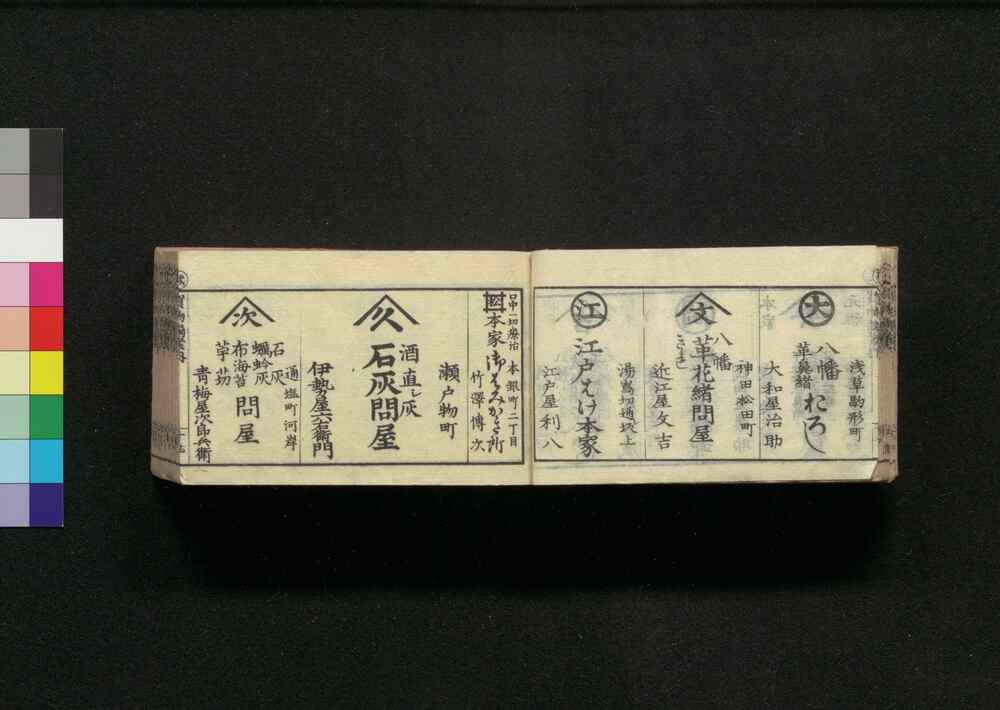 浅草駒形町
大
八幡
革鼻緒
おろし
大和屋治助
神田松田町
文
八幡
革花緒問屋
近江屋文吉
湯嶌切通坂上
江
江戸はけ本家
江戸屋利八
口中一切療治
本銀町二丁目
本家御はみがき所
竹澤傳次
瀬戸物町
久
酒直し灰
石灰問屋
伊勢屋六右衛門
通塩町河岸
次
石灰
蠣蛤灰
布海苔
問屋
青梅屋次郎兵衛